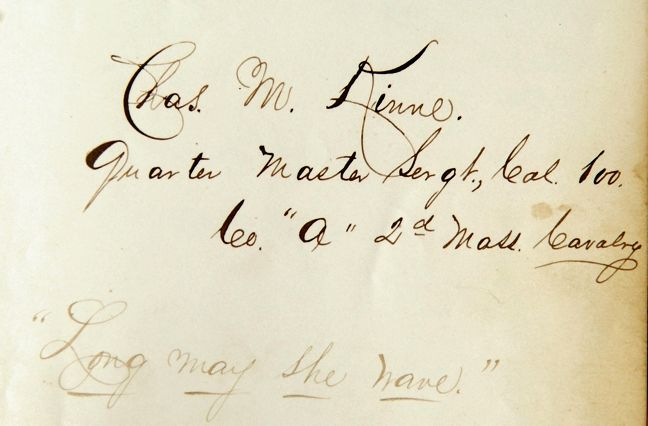 Chas. M. Kinne.
Quarter Master Sergt., Cal. 100.
Co. "A" 2d Mass. Cavalry
"Long may she wave."